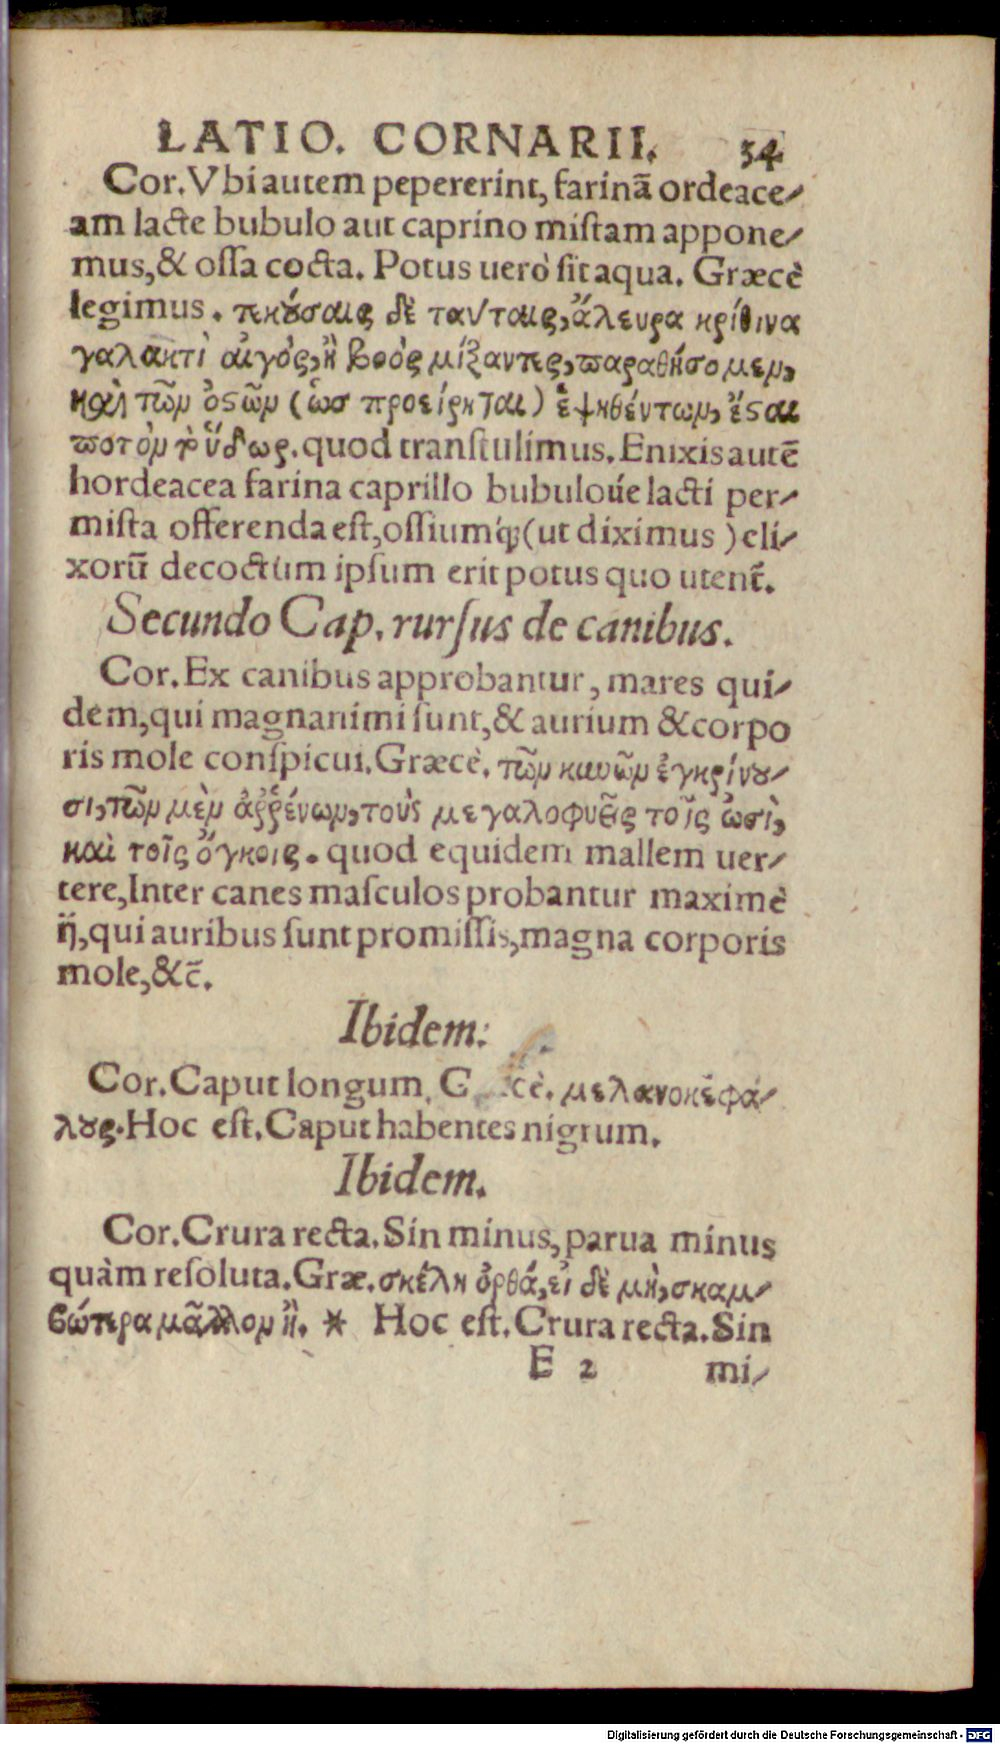 LATIO. CORNARII. 54
Cor. Vbi autem pepererint, farinā ordeace/
am lacte bubulo aut caprino mistam appone/
mus, & ossa cocta. Potus uerò sit aqua. Græcè
legimus. τεκούσαις δὲ ταύταις, ἄλευρα κρίθινα
γαλακτὶ αἰγὸς, ἢ βοὸς μίξαντες, παραθήσομεν,
καὶ τῶν ὀστῶν (ὡσ προείρηται) ἑψηθέντων, ἔσαι
ποτὸν τὸ ὕδωρ. quod transtulimus. Enixis autē
hordeacea farina caprillo bubulóue lacti per/
mista offerenda est, ossiumq́; (ut diximus) eli/
xorū decoctum ipsum erit potus quo utent̄.
Secundo Cap. rursus de canibus.
Cor. Ex canibus approbantur, mares qui/
dem, qui magnanimi sunt, & aurium & corpo
ris mole conspicui. Græcè. τῶν κυνῶν ἐγκρίνου/
σι, τῶν μὲν ἀῤῥένων, τοὺς μεγαλοφυεῖς τοῖς ὠσὶ,
καὶ τοῖς ὄγκοις. quod equidem mallem uer/
tere, Inter canes masculos probantur maximè
ij, qui auribus sunt promissis, magna corporis
mole, &c̄.
Ibidem:
Cor. Caput longum. μελανοκεφά/
λους. Hoc est. Caput habentes nigrum.
Ibidem.
Cor. Crura recta. Sin minus, parua minus
quàm resoluta. Græ. σκέλη ὀρθά, εἰ δὲ μὴ, σκαμ/
βώτερα μᾶλλον ἢ. * Hoc est. Crura recta. Sin
E 2 mi/
Digitalisierung gefördert durch die Deutsche Forschungsgemeinschaft - DFG